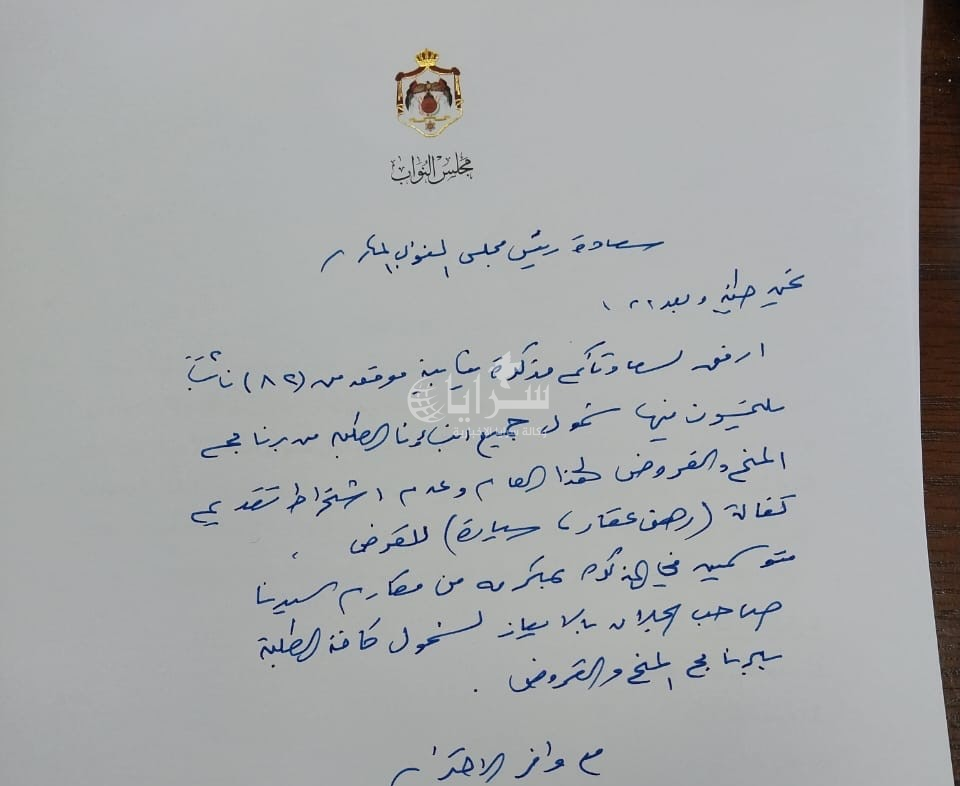 مجلس النواب
سعادة رئيس مجلس النواب المكرم
تحية طيبة وبعد ،،،
ارفق لسعادتكم مذكرة نيابية موقعه من (٨٢) نائباً
يلتمسون منها شمول جميع ابنائنا الطلبة من برنامج
المنح والقروض لهذا العام وعدم اشتراط تقديم
كفالة (رهن عقار، سيارة) للقرض ،
متوسمين في المذكرة بمكرمه من مكارم سيدنا
صاحب الجلالة بالايعاز لشمول كافة الطلبة
ببرنامج المنح والقروض .
مع وافر الاحترام
سرايا
وكالة سرايا الإخبارية